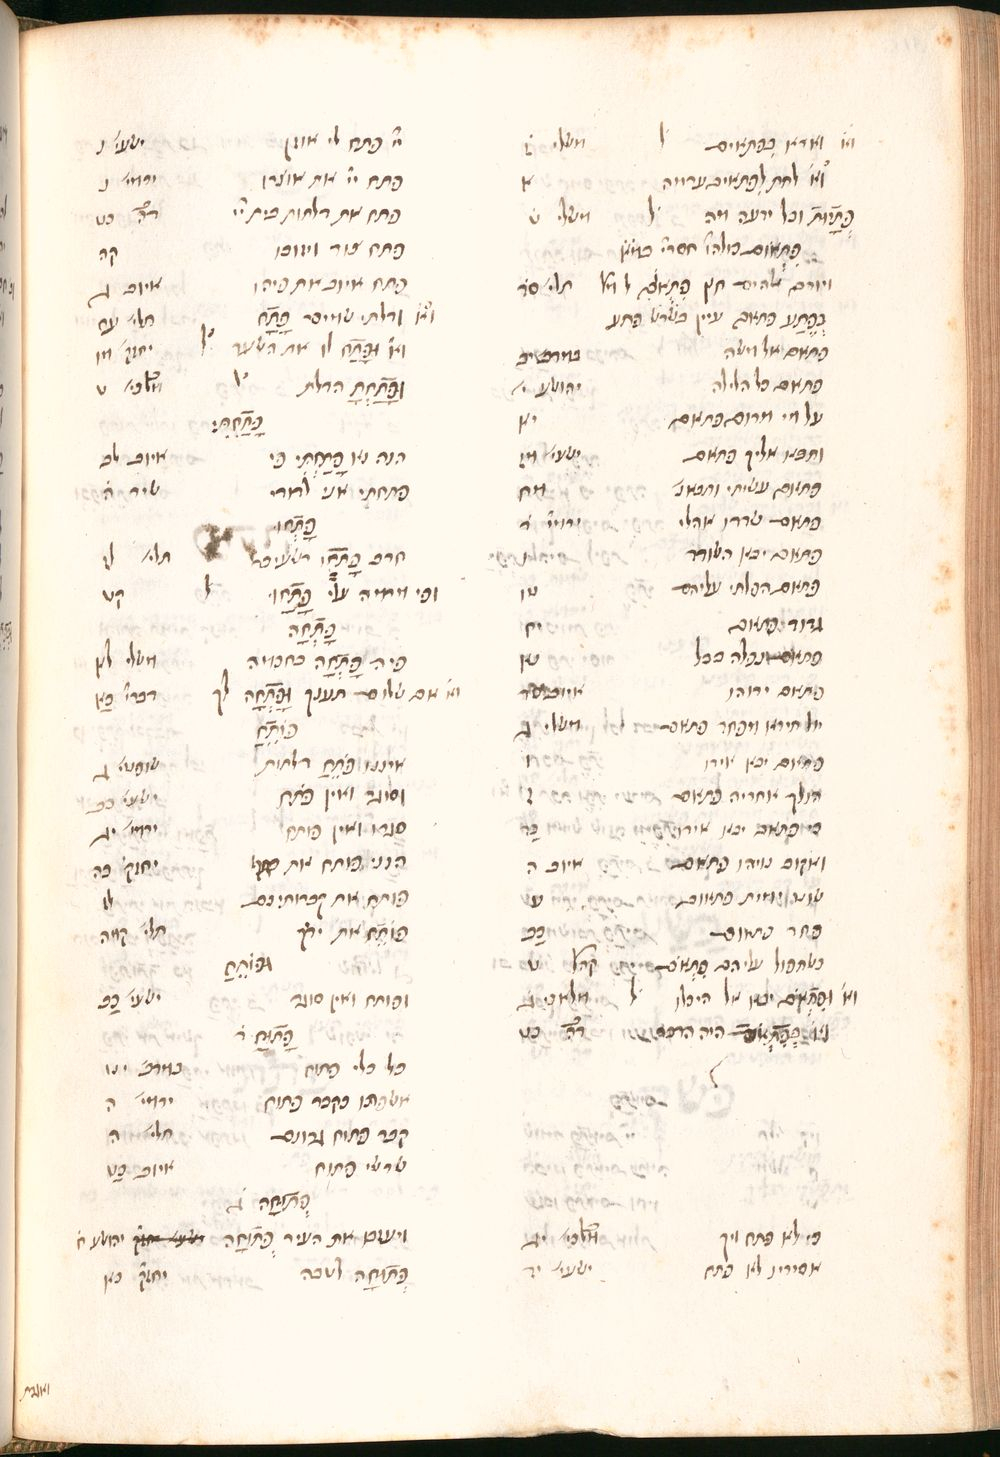 וא׳ וארא בַפְתָאיִם ל׳ משלי ז
וא׳ לתת לִפְתָאיִם ערמה א
פְּתַיּוּת ובל ידעה מה ל׳ משלי ט
פִּתְאוֹם
ויורם אלהים חץ פִּתְאוֹם תלי׳ סד
בְּפֶתַע פתאום עיין בשרש פתע
פתאום אל משה במדבר יב
פתאום כל הלילה יהושע י
על מי מרום פתאום יא
ותבא אליך פתאום ישעי׳ מז
פתאום עשיתי ותבאנ׳ מח
פתאום שדדו אהלי ירמי׳ ד
פתאום יבא השודד ו
פתאום הפלתי עליהם טו
גדוד פתאום יח
פתאום נפלה בבל נא
פתאום ירוהו
אל תירא מפחד פתאום משלי ג
פתאום יבא אידו ו
הולך אחריה פתאום ז
כי פתאום יבוא אידו כד
ואקוב נויהו פתאום איוב ה
שוט ימית פתאום ט
פחד פתאום כב
כשתפול עליהם פִּתְאֹם קהל׳ ט
וא׳ וּפִתְאֹם יבוא אל היכלו ל׳ מלאכי ג
היה הדבר דה״ב כט
כי לא פתח ויך
אסיריו לא פתח ישעי׳ יד
יי׳ פתח לי אוזן ישעי׳ נ
פתח יי׳ את אוצרו ירמי׳ נ
פתח את דלתות בית יי׳ דה״ב כט
פתח צור ויזובו קה
פתח איוב את פיהו איוב ג
וא׳ ודלתי שמים פָּתָח תלי׳ עח
וא׳ וּפָתַח לו את השער ל׳ יחזק׳ מו
וּפָתַחְתָּ הדלת ל׳ מלכי׳ ט
פָּתַחְתִּי
הנה נא פָּתַחְתִּי פי איוב לג
פתחתי אני לדודי שיר ה
פָּתְחוּ
חרב פָּתְחוּ רשעים תלי׳ לז
ופי מרמה עלי פָּתָחוּ ל׳ קט
פָּתְחָה
פיה פָּתְחָה בחכמה משלי לא
וא׳ אם שלום תענך וּפָתְחָה לך דברי׳ כא
פּוֹתֵחַ
איננו פֹּתֵחַ דלתות שופטי׳ ג
וסוגר ואין פתח ישעי׳ כב
סגרו ואין פותח ירמי׳ יג
הנני פותח את יחזק׳ כה
פותח את קברותיכם לז
פּוֹתֵחַ את ידך תלי׳ קמה
וּפוֹתֵחַ
ופותח ואין סוגר ישעי׳ כב
פָּתוּחַ ד׳
כל כלי פתוח במדב׳ יט
אשפתו כקבר פתוח ירמי׳ ה
קבר פתוח גרונם תלי׳ ה
שרשי פתוח איוב כט
פְּתוּחָה ב׳
ויעזבו את העיר פְּתוּחָה יהושע ח
פְּתוּחָה לשכה יחזק׳